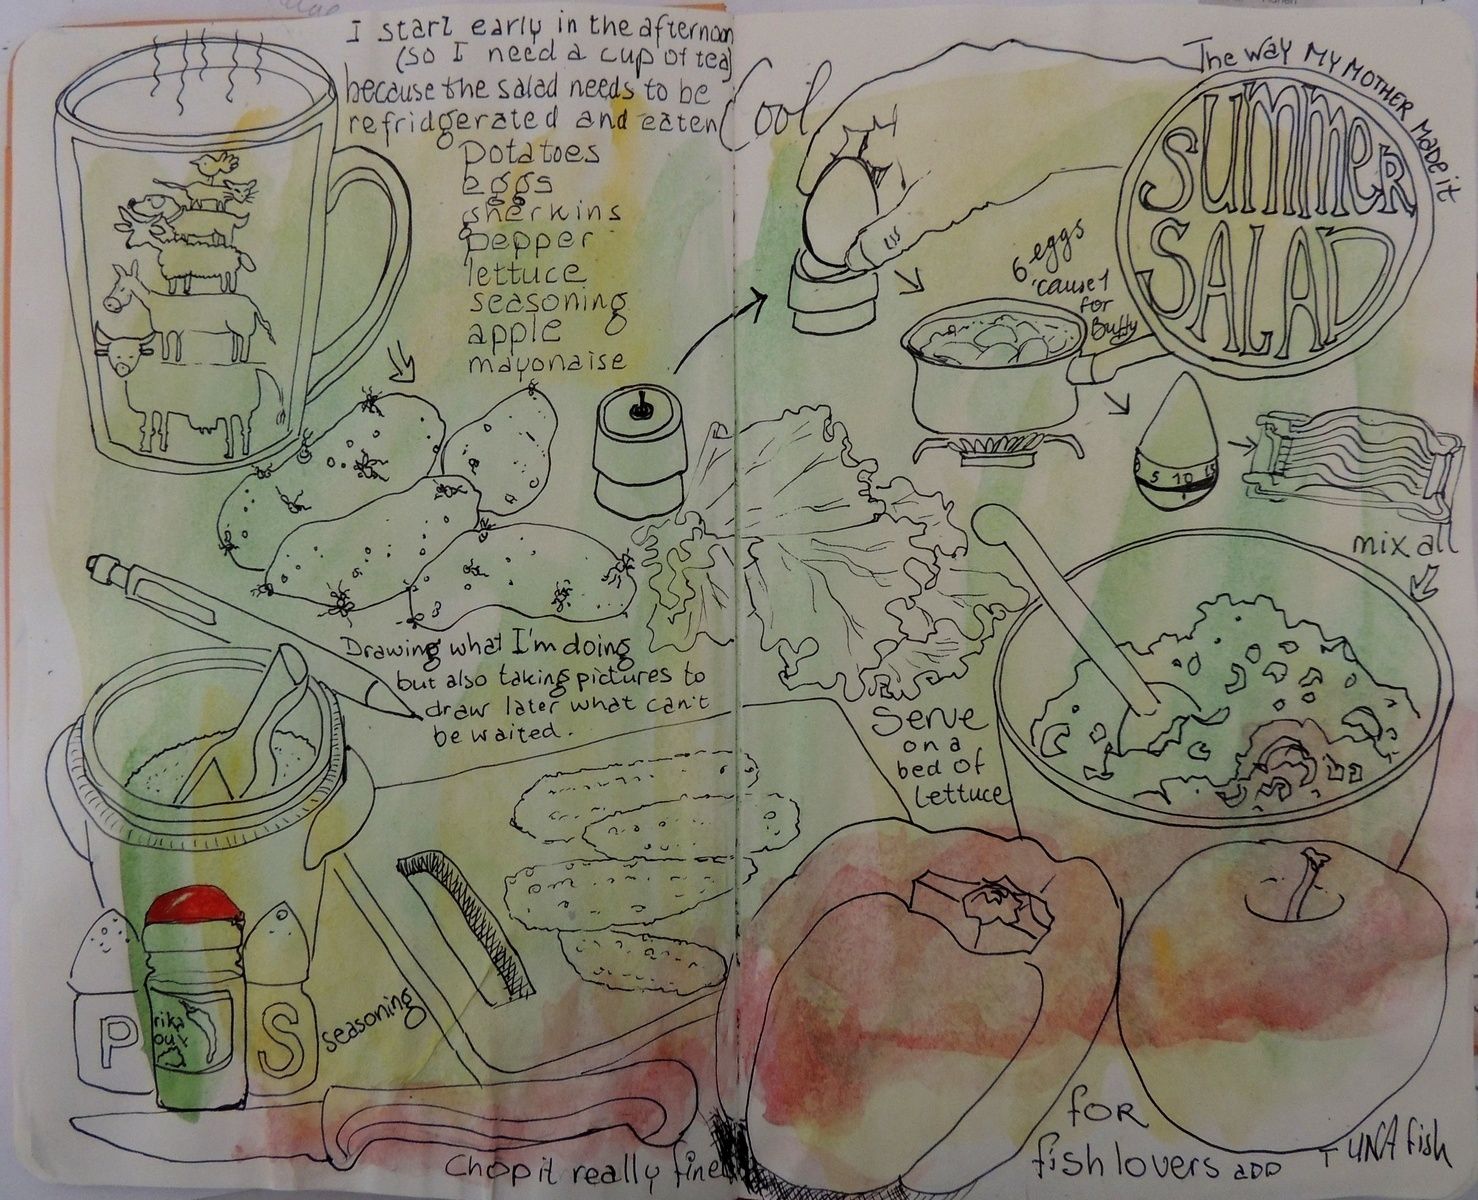 I start early in the afternoon
(so I need a cup of tea)
because the salad needs to be
refridgerated and eaten Cool
potatoes
eggs
gherkins
pepper
lettuce
seasoning
apple
mayonaise
The way MY MOTHER Made it
SUMMER
SALAD
6 eggs
'cause 1
for
Buffy
5 10 15
mix all
Drawing what I'm doing
but also taking pictures to
draw later what can't
be waited.
Serve
on a
bed of
lettuce
P
rika
oux
S
seasoning
Chop it really fine
for
fish lovers ADD TUNA fish